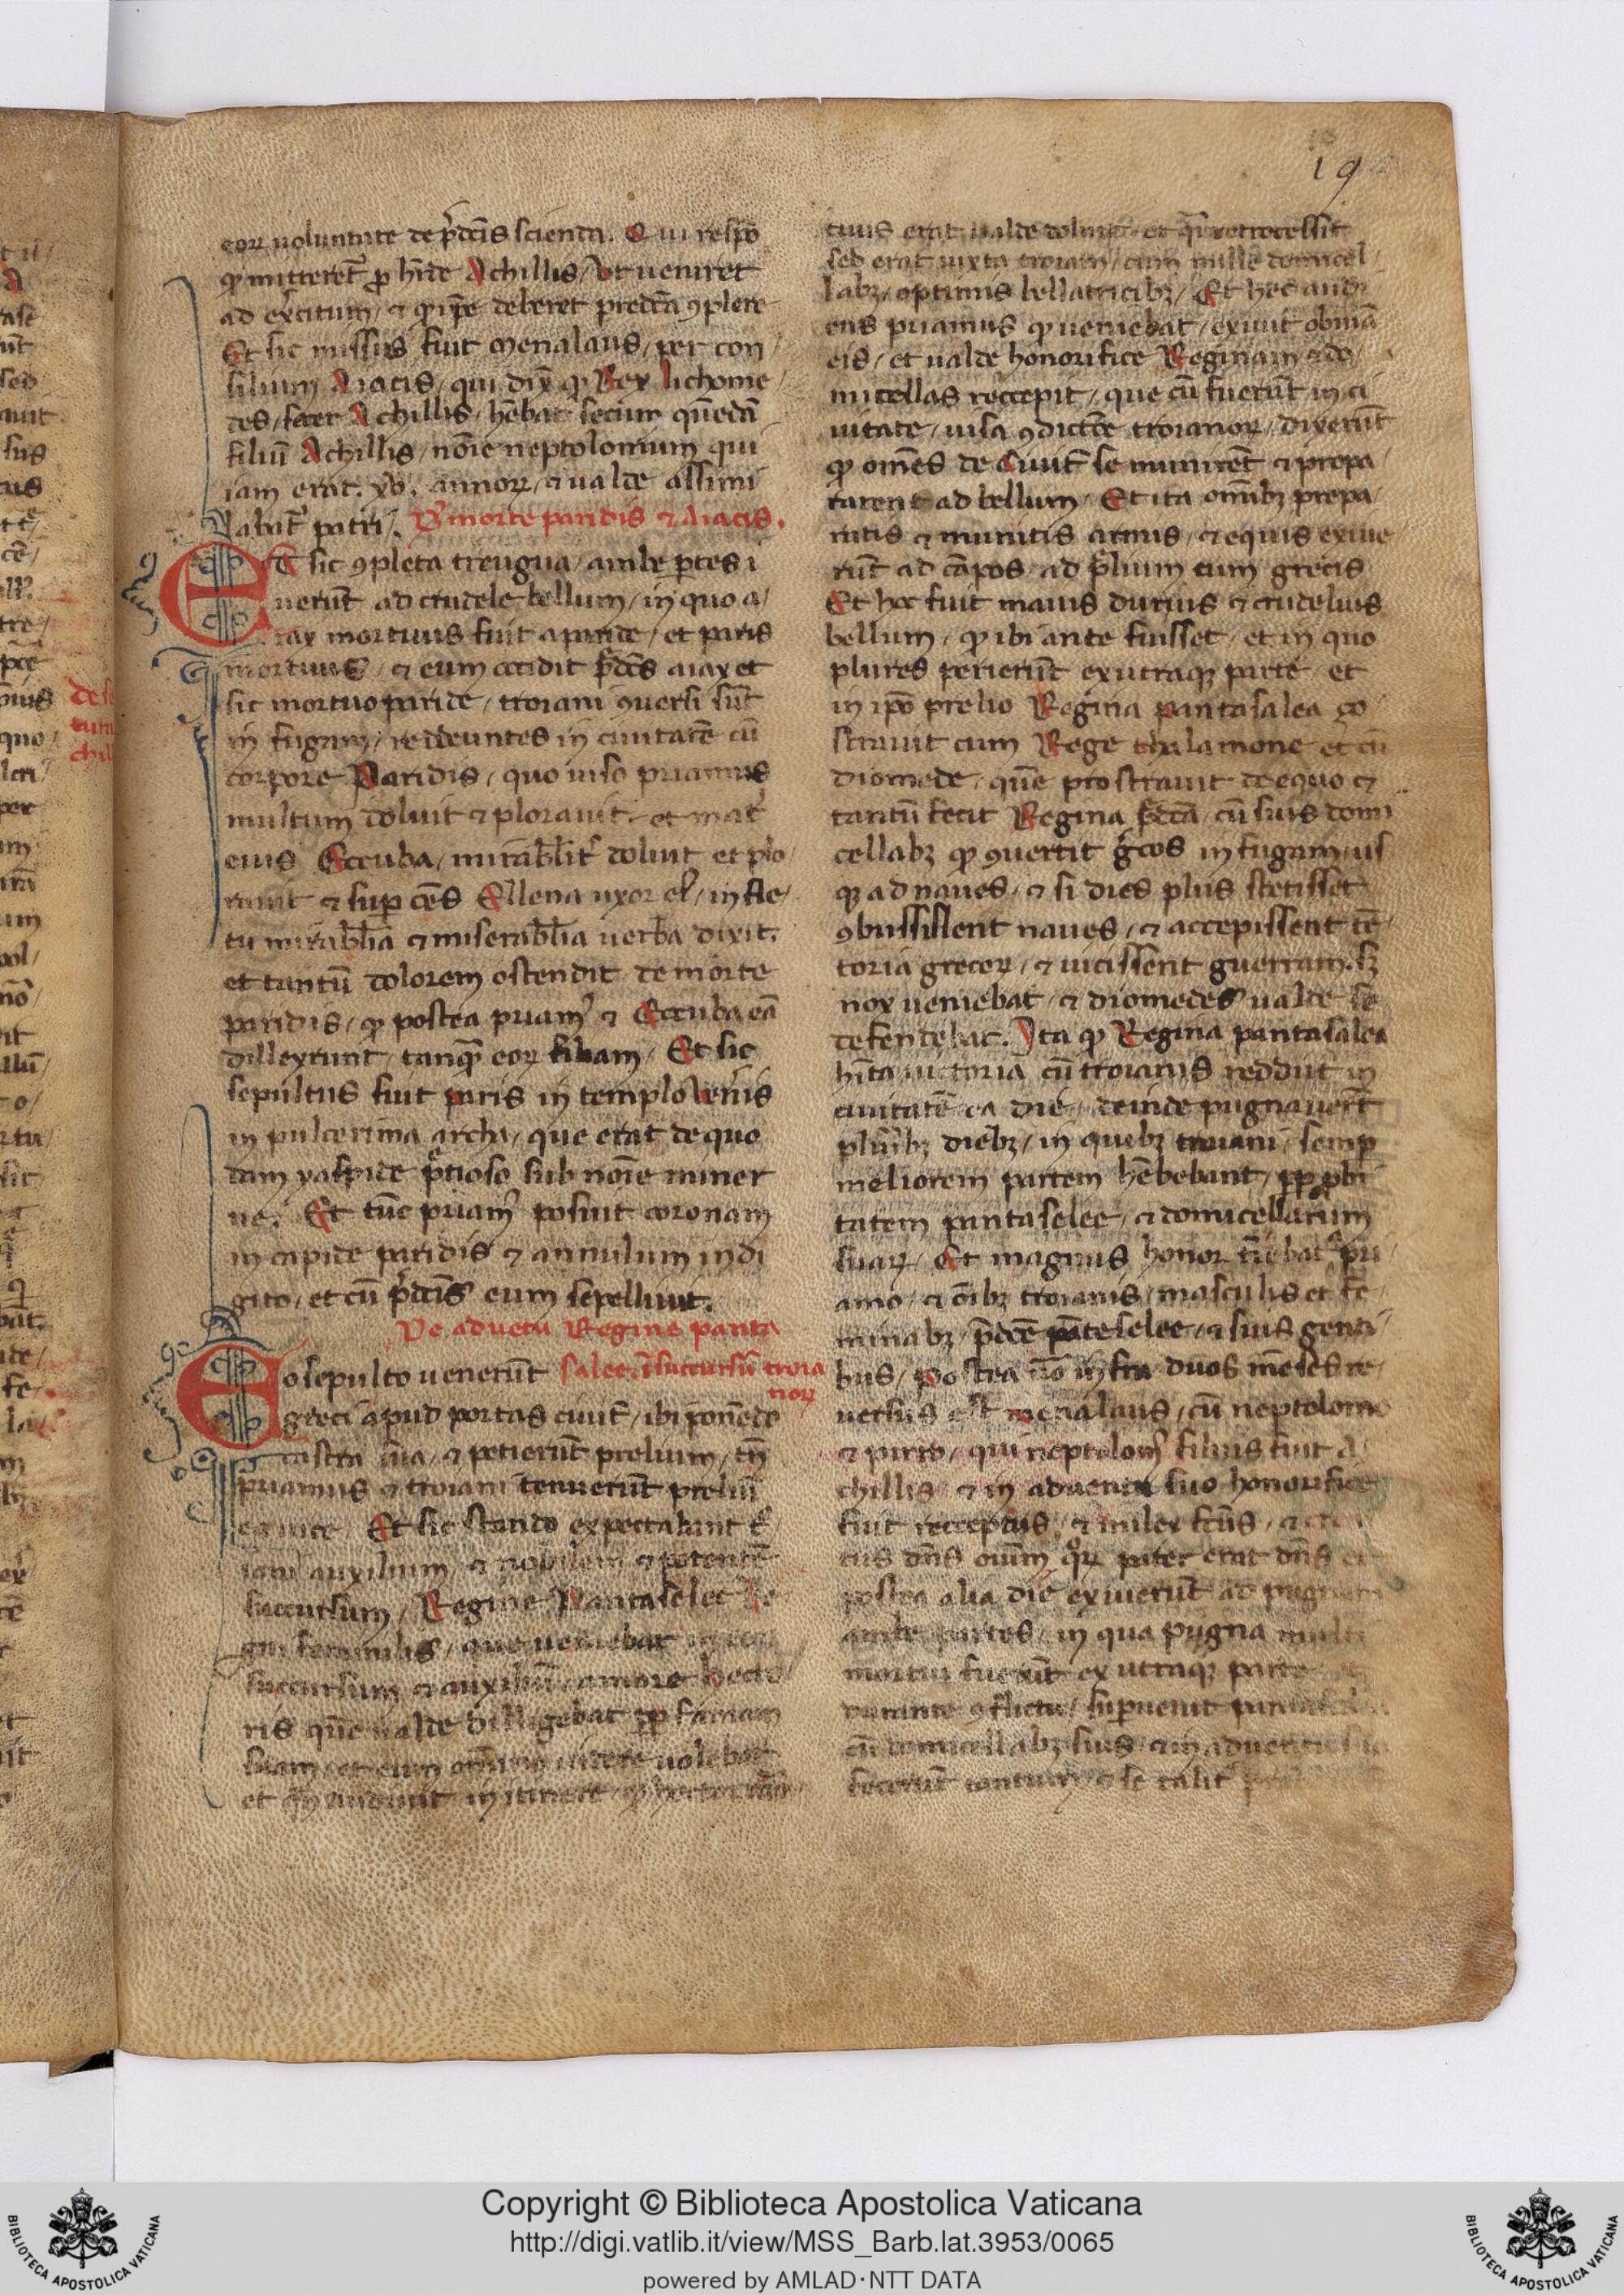 19
eoꝝ uoluntate de p̄dcīs scienda. Qui respō
ꝙ mitteret̄ ꝓ h̄nde Achillis / Vt ueniret
ad exc̄itum / ⁊ ꝙ ip̄e deberet predc̄a ꝯplere
Et sic missus fuit menalaus / per con /
silium Aiacis / qui dix̄ ꝙ Rex lichome /
des / socer Achillis / hēbat secum quēdā
filiū Achillis / noīe neptolomum qui
iam erat .xv. annoꝝ / ⁊ ualde assimi
labat̄ patri /. De morte paridis ⁊ Aiacis.
Et sic ꝯpleta treugua / ambe ꝑtes i
uerūt ad crudele bellum / in quo a /
iax mortuus fuit a paride / et paris
mortuus / ⁊ eum occidit p̄dc̄s aiax et
sic mortuo paride / troiani ꝯuersi sūt
in fugam / reddeuntes in ciuitatē cū
corpore Paridis / quo uiso priamus
multum doluit ⁊ plorauit / et mat̄
eius Eccuba / mirabilit̄ doluit et plo /
rauit ⁊ suꝑ oēs Ellena uxor ei / in fle /
tu mirabilia ⁊ miserabilia uerba dixit.
et tantū dolorem ostendit de morte
paridis / ꝙ postea priamꝰ ⁊ Eccuba eā
dillexerunt / tanqᷓ eoꝝ filiam / Et sic
sepultus fuit paris in templo Ven̄is
in pulcerima archa / que erat de quo
dam yaspide p̄tioso sub noīe miner
ue. Et tūc priamꝰ posuit coronam
in capite paridis ⁊ annulum in di
gito / et cū p̄dcīs eum sepelliuit.
De aduētu Regine panta
Eo sepulto uenerūt salee ī succursū troia
noꝝ
greci apud portas ciuit̄ / ibi ponēdo
castra sua / ⁊ petierūt prelium / tn̄
priamus ⁊ troiani tenuerūt preliū
Et sic stando expectabant
auxilium / ⁊ nobilem ⁊ potentē
succursum / Regine Pantaselee
que ueniebat
succursum ⁊ auxiliū / amore hecto /
ris quē ualde dilligebat ꝓp famam
suam / et eum uidere uolebat
et audiuit in itinere / ꝙ hector
tuus erat ualde doluit / et retrocessit
sed erat iuxta troiam / cum mille domicel /
labꝫ / optimis bellatricibꝫ / Et hec audi
ens priamus ꝙ ueniebat / exiuit obuiā
eis / et ualde honorifice Reginam ⁊ do /
micellas reccepit / que cū fuerūt in ci
uitate / uisa ꝯdictōe troianoꝝ / dixerūt
ꝙ omēs de Ciuit̄ se munirēt ⁊ prepa /
rarent ad bellum / Et ita omībꝫ prepa /
ratis ⁊ munitis armis / ⁊ equis exiue
rūt ad cāpos / ad p̄lium cum grecis
Et hoc fuit maius durius ⁊ crudelius
bellum / ꝙ ibi ante fuisset / et in quo
plures perierūt ex utraqꝫ parte / et
in ip̄o prelio Regina pantasalea go /
strauit cum Rege thalamone et cū
diomede / quē prostrauit de equo ⁊
tantū fecit Regina p̄dcā / cū suis domi
cellabꝫ ꝙ ꝯuertit ḡcos in fugam / us
qꝫ ad naues / ⁊ si dies plus stetisset
ꝯbussissent naues / ⁊ accepissent tē
toria grecoꝝ / ⁊ uicissent guerram. sꝫ
nox ueniebat / ⁊ diomedes ualde se
defendebat. Ita ꝙ Regina pantasalea
h̄ita uictoria cū troianis reddiit in
ciuitatē ea die / deinde pugnauer̄t
plurībꝫ diebꝫ / in quibꝫ troiani / semꝑ
meliorem partem hēbebant / ꝓp ꝓbi
tatem pantaselee / ⁊ domicellarum
suaꝝ / Et magnus honor fiebat pri /
amo / ⁊ oībꝫ troianis / masculis et fe /
minabꝫ / p̄dcē pāteselee / ⁊ suis genti
bus / postea uō infra duos mēses re /
uersus est menalaus / cū neptolomo
⁊ pirro / qui neptolomꝰ filius fuit A /
chillis / ⁊ in aduentu suo honorifice
fuit recceptus / ⁊ miles fc̄us /
pater erat dn̄s
postea alia die exiuerūt ad pugnam
ambe partes / in qua pugna multi
mortui fuerūt ex utraqꝫ parte
durante ꝯflictu / suꝑuenit
cū domicellabꝫ suis / ⁊ in aduentu
fecerūt ⁊ se talit̄
Copyright © Biblioteca Apostolica Vaticana
http://digi.vatlib.it/view/MSS_Barb.lat.3953/0065
powered by AMLAD·NTT DATA
BIBLIOTECA APOSTOLICA VATICANA
BIBLIOTECA APOSTOLICA VATICANA